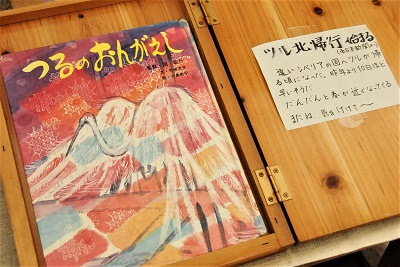 つるのおんがえし
ツル北帰行 始まる
遠いシベリアの国へツルが帰
る頃になった。昨年より10日ほど
早いそうだ
だんだんと春が近くなってくる
またね 気をつけて〜